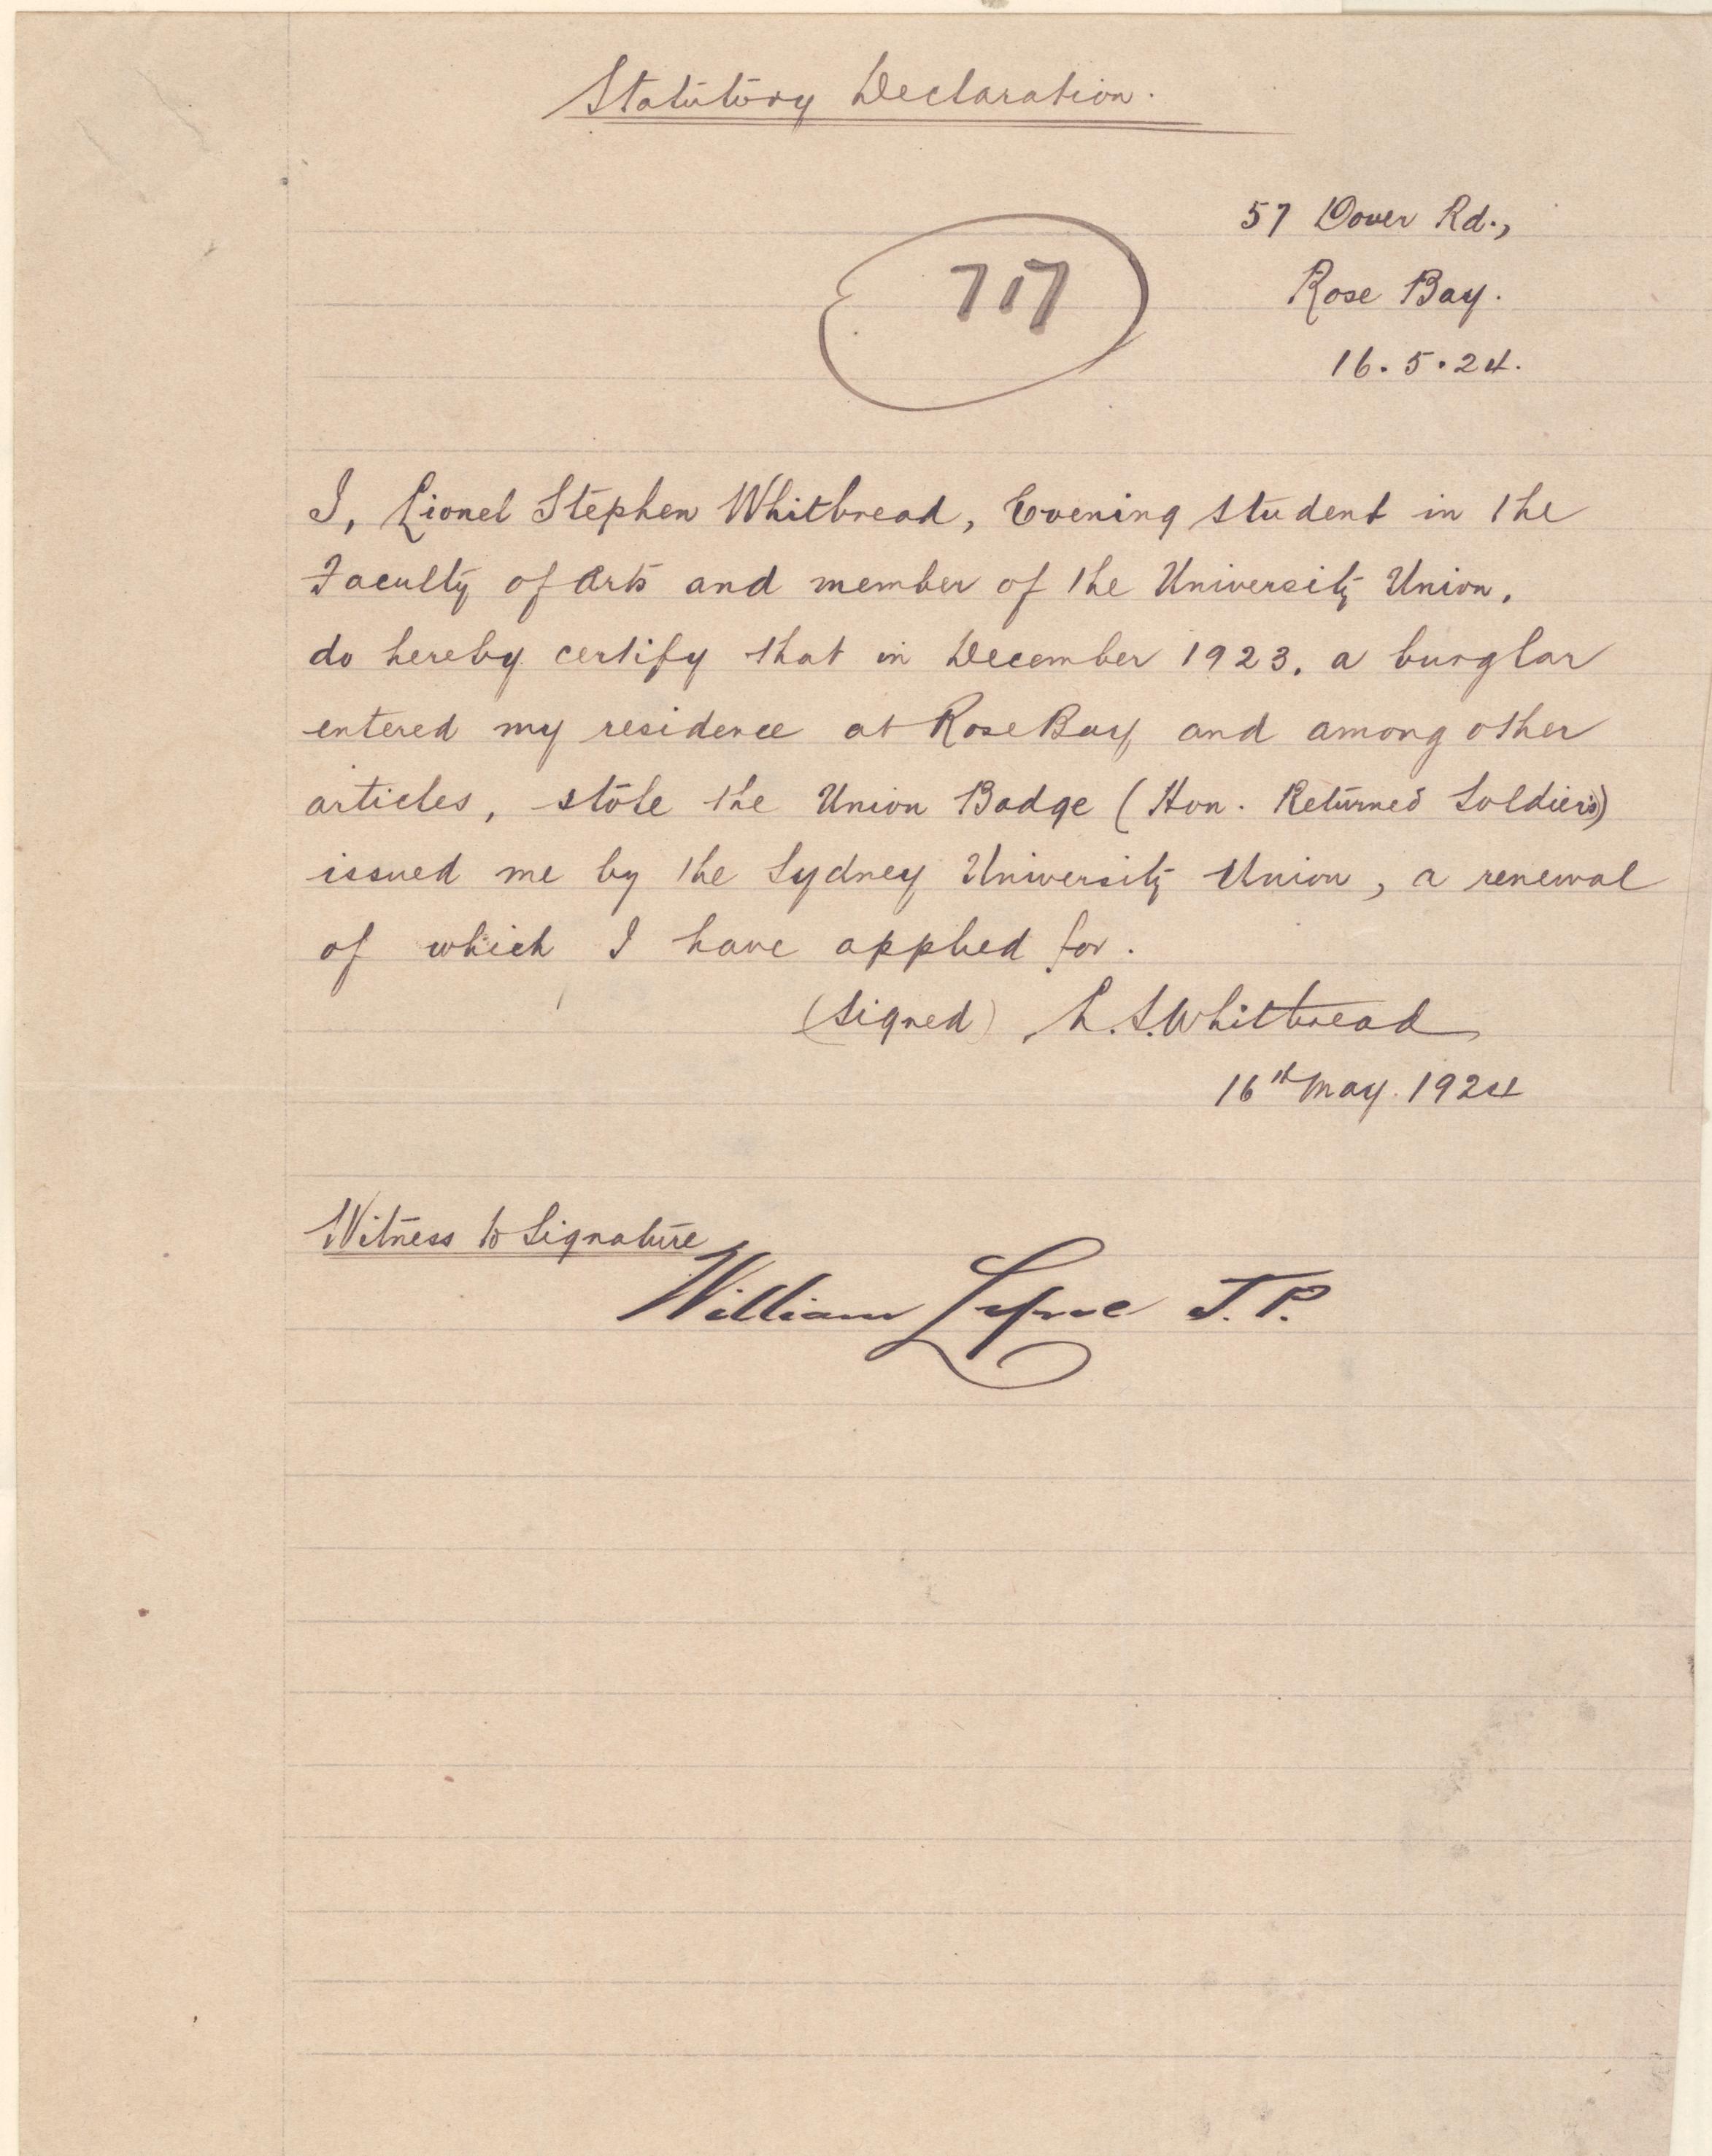 Statutory Declaration.
57 Dover Rd.,
717
Rose Bay.
16.5.24.
I, Lionel Stephen Whitbread, Evening student in the
Faculty of Arts and member of the University Union,
do hereby certify that in December 1923, a burglar
entered my residence at Rose Bay and among other
articles, stole the Union Badge (Hon. Returned Soldiers)
issued me by the Sydney University Union, a renewal
of which I have applied for.
(Signed) L. S. Whitbread
16th May. 1924
Witness to Signature
William J.P.